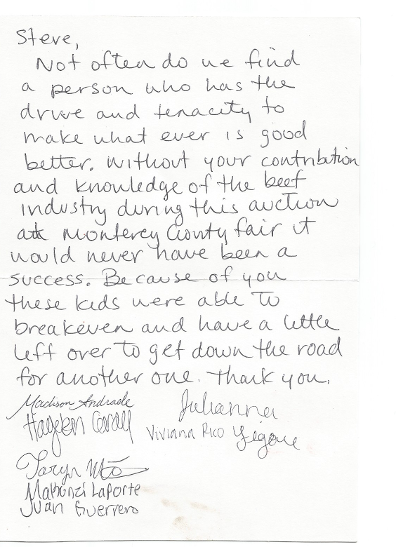 Steve,
Not often do we find
a person who has the
drive and tenacity to
make what ever is good
better. Without your contribution
and knowledge of the beef
industry during this auction
at Monterey County fair it
would never have been a
success. Because of you
these kids were able to
breakeven and have a little
left over to get down the road
for another one. Thank you.
Madison Andrade
Julianna
Viviana Rico
Taryn
Laporte
Juan Guerrero